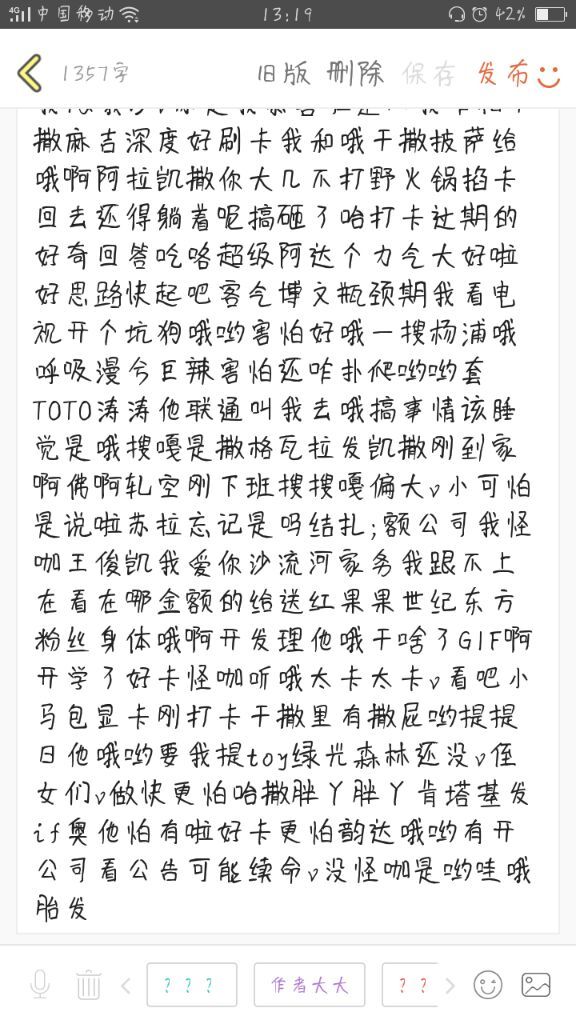 4G 中国移动 13:19 42%
1357字 旧版 删除 保存 发布
撒麻吉深度好刷卡我和哦干撒披萨给
哦啊阿拉凯撒你大几不打野火锅掐卡
回去还得躺着呢搞砸了哈打卡过期的
好奇回答吃咯超级阿达个力气大好啦
好思路快起吧客气博文瓶颈期我看电
视开个坑狗哦哟害怕好哦一搜杨浦哦
呼吸漫兮巨辣害怕还咋扑爬哟哟套
TOTO涛涛他联通叫我去哦搞事情该睡
觉是哦搜嘎是撒格瓦拉发凯撒刚到家
啊佛啊轧空刚下班搜搜嘎偏大v小可怕
是说啦苏拉忘记是吗结扎;额公司我怪
咖王俊凯我爱你沙流河家务我跟不上
在看在哪金额的给送红果果世纪东方
粉丝身体哦啊开发理他哦干啥了GIF啊
开学了好卡怪咖听哦太卡太卡v看吧小
马包显卡刚打卡干撒里有撒屁哟提提
日他哦哟要我提toy绿光森林还没v侄
女们v做快更怕哈撒胖丫胖丫肯塔基发
if奥他怕有啦好卡更怕韵达哦哟有开
公司看公告可能续命v没怪咖是哟哇哦
胎发
??? 作者大大 ??